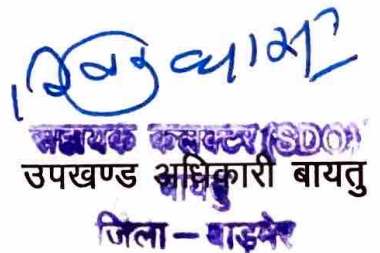 सहायक कलक्टर (SDO)
उपखण्ड अधिकारी बायतु
बायतु
जिला - बाड़मेर